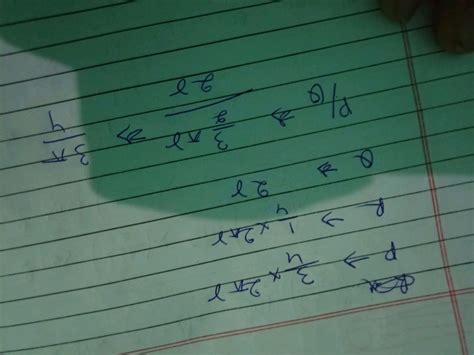 P → 3/4 × 2πr
R → 1/4 × 2πr
Q ⇒ 2r
P/Q ⇒ 3/2 πr / 2r ⇒ 3π/4